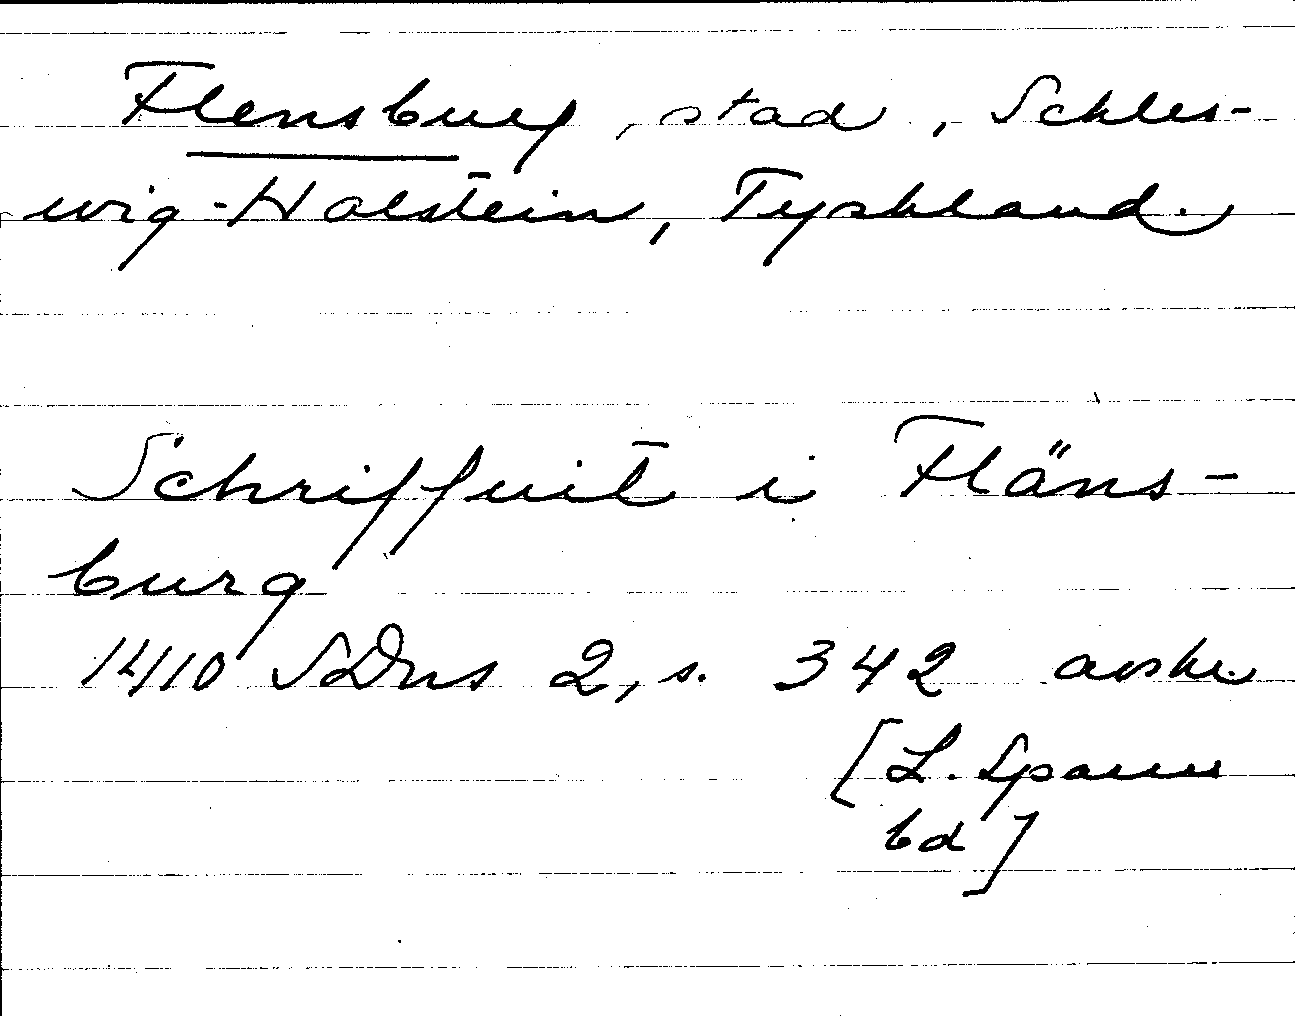 Flensburg, stad, Schles-
wig-Holstein, Tyskland.
Schriffuit i Fläns-
burg
1410 SDns 2, s. 342 avskr.
[L. Sparre
bd]